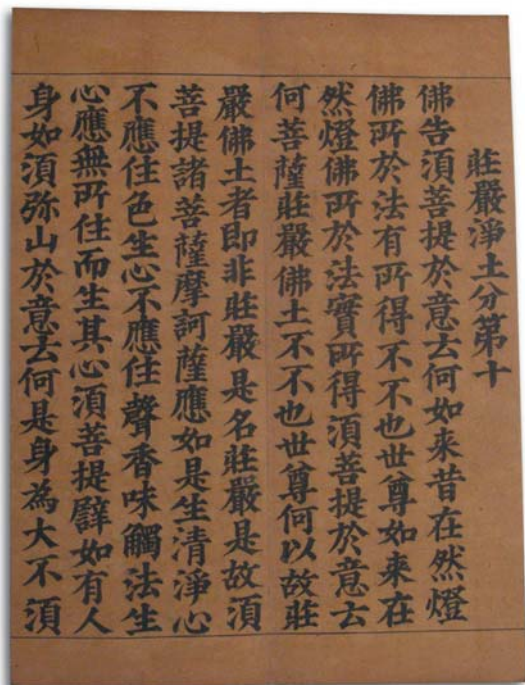 莊嚴淨土分第十
佛告須菩提於意云何如来昔在然燈
佛所於法有所得不不也世尊如来在
然燈佛所於法實所得須菩提於意云
何菩薩莊嚴佛土不不也世尊何以故莊
嚴佛土者即非莊嚴是名莊嚴是故須
菩提諸菩薩摩訶薩應如是生清淨心
不應住色生心不應住聲香味觸法生
心應無所住而生其心須菩提譬如有人
身如須弥山王於意云何是身為大不須